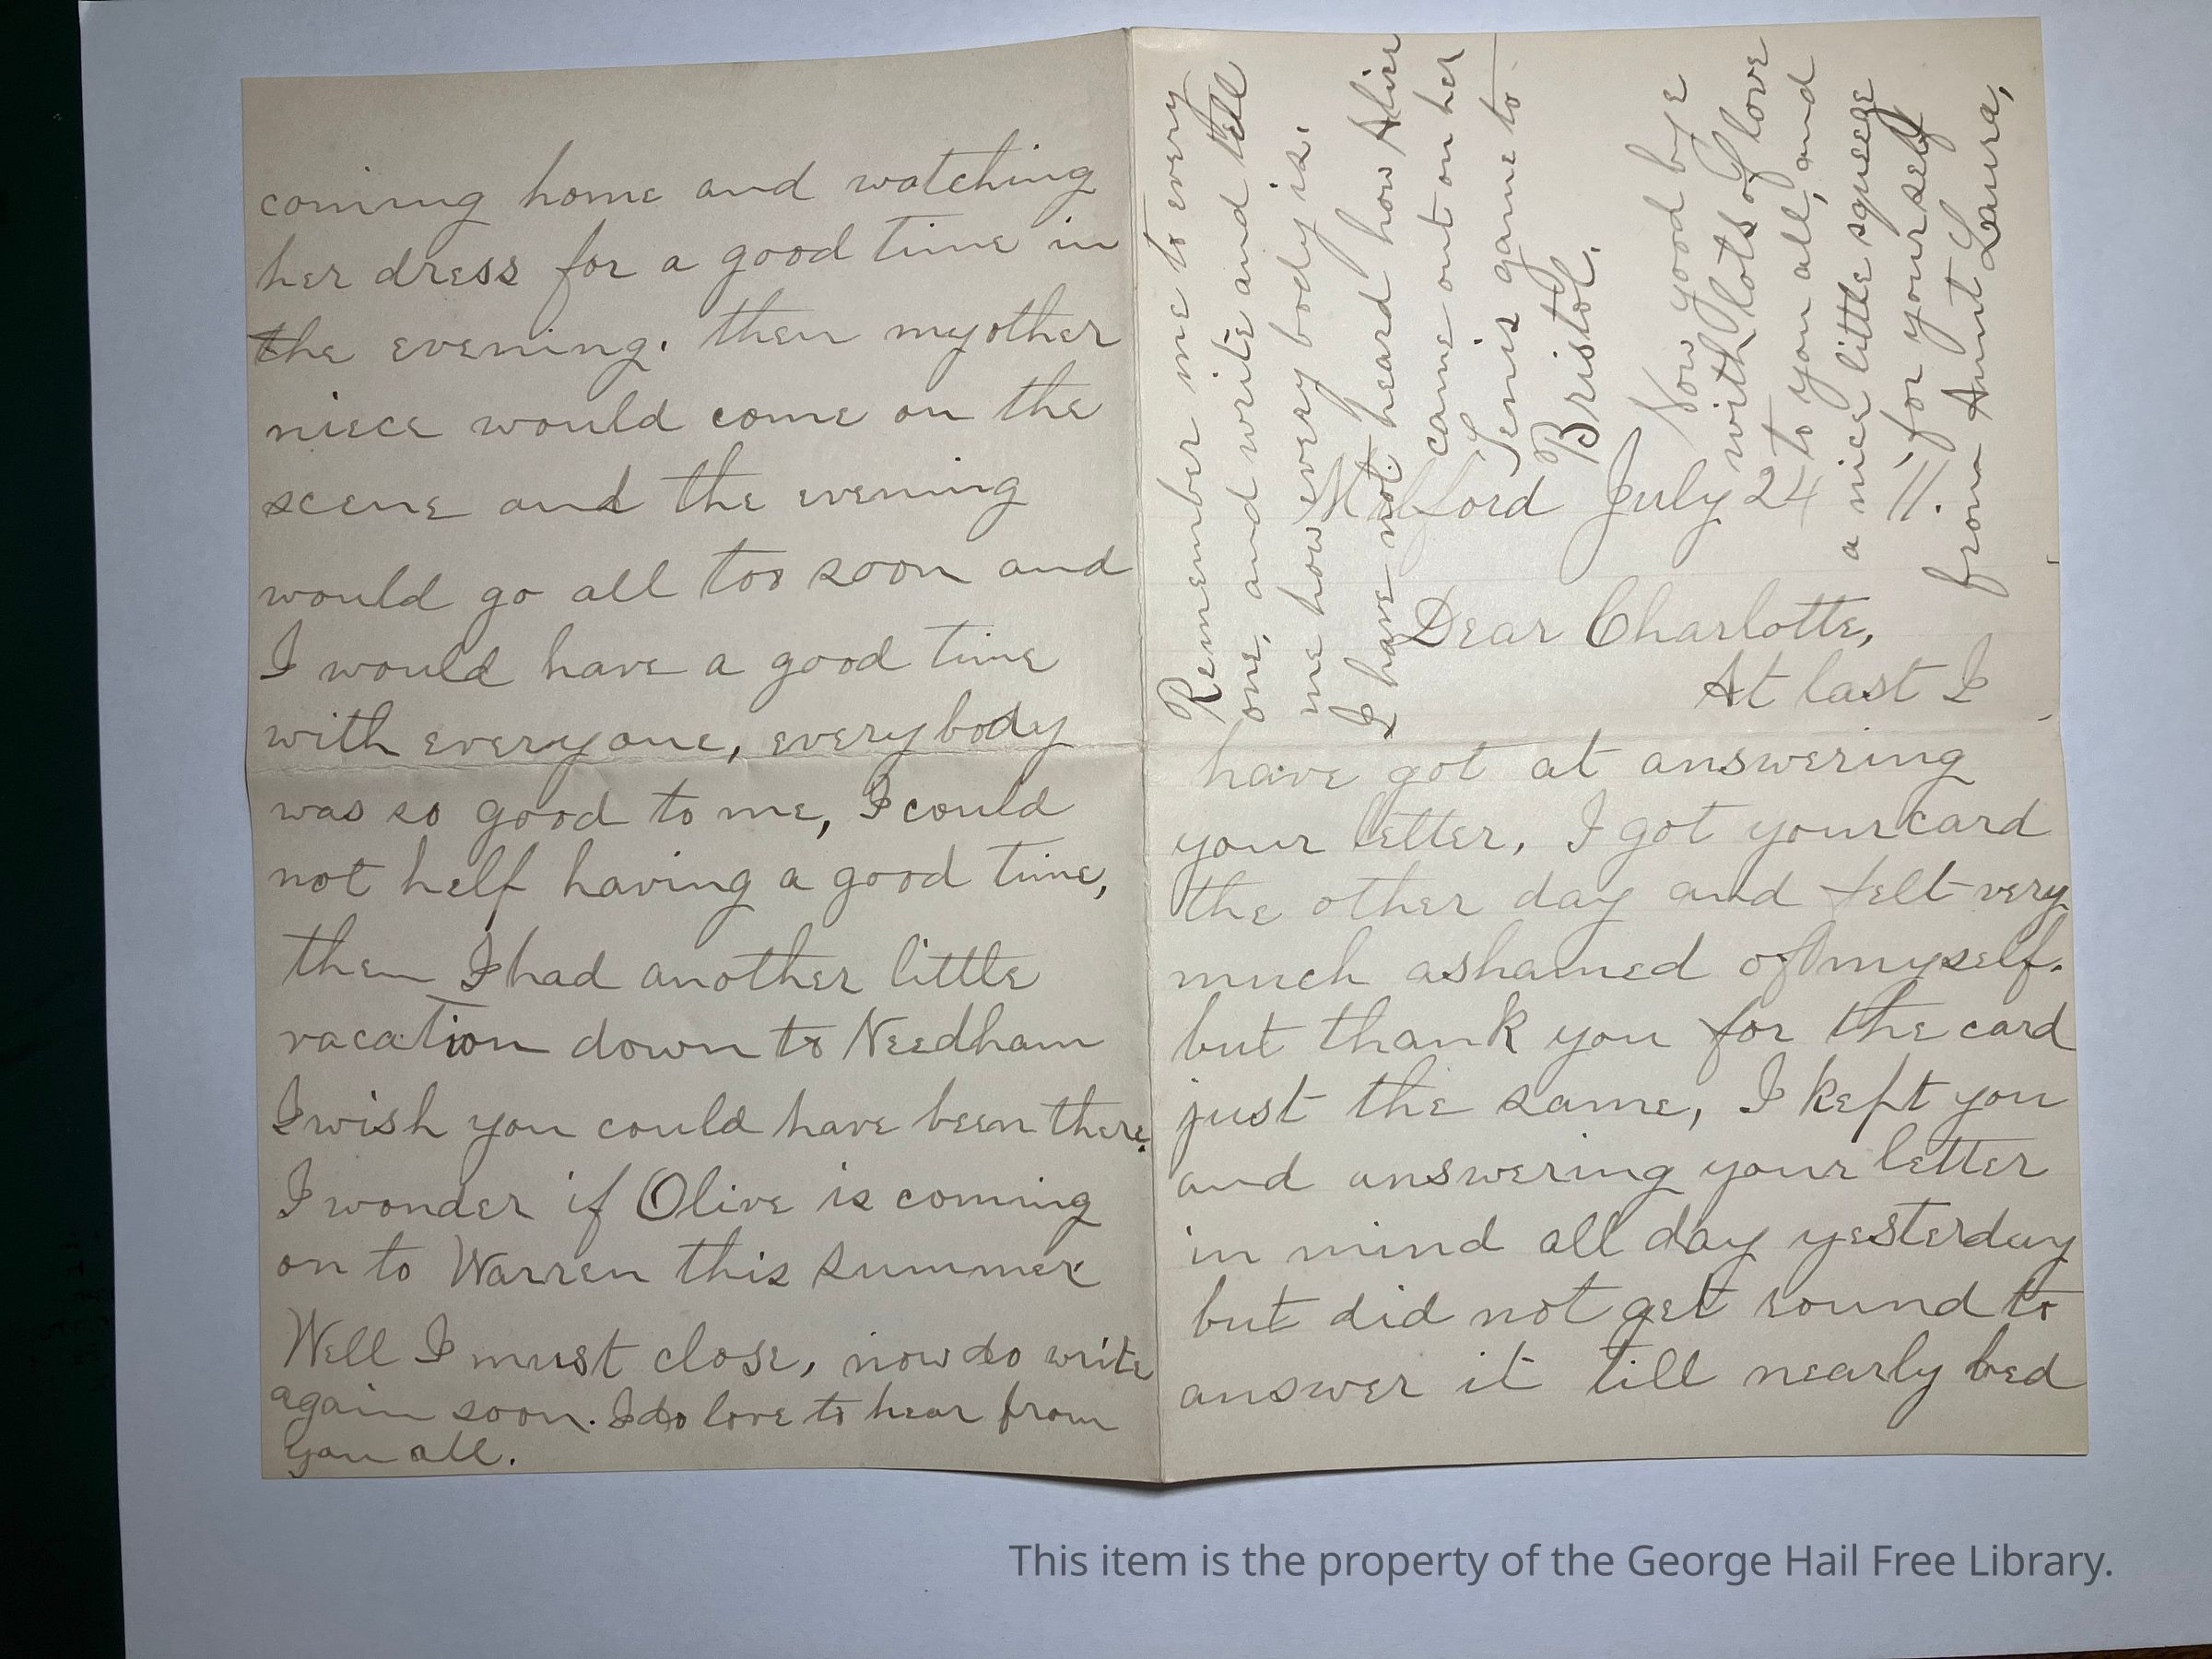 Milford July 24 '11.
Dear Charlotte,
At last I
have got at answering
your letter, I got your card
the other day and felt very
much ashamed of myself.
but thank you for the card
just the same, I keft you
and answering your letter
in mind all day yesterday
but did not get round to
answer it till nearly bed
coming home and watching
her dress for a good time in
the evening. then my other
niece would come on the
scene and the evening
would go all too soon and
I would have a good time
with everyone, everybody
was so good to me, I could
not helf having a good time,
then I had another little
vacation down to Needham
I wish you could have been there.
I wonder if Olive is coming
on to Warren this summer
Well I must close, now do write
again soon. I do love to hear from
you all.
Remember me to every
one, and write and tell
me how every body is.
I have not heard how Alice
came out on her
Tenis game to
Bristol.
Now good bye
with lots of love
to you all, and
a nice little squeeze
for yourself
from Aunt Laura,
This item is the property of the George Hail Free Library.